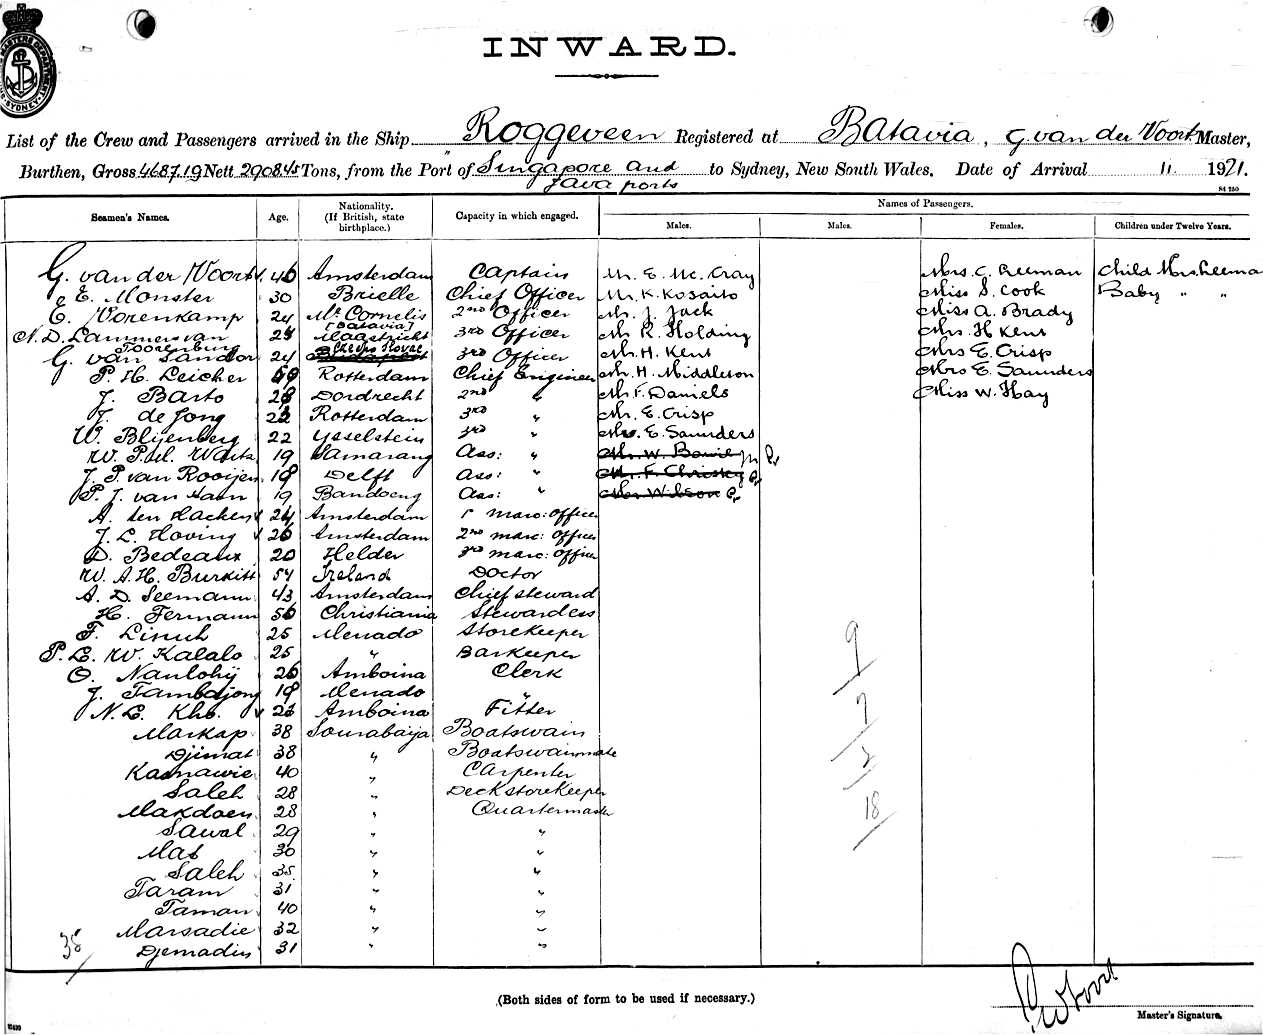 INWARD.
List of the Crew and Passengers arrived in the Ship Roggeveen Registered at Batavia, G. van der Voort Master,
Burthen, Gross 4687.19 Nett 2908.45 Tons, from the Port of Singapore and Java ports to Sydney, New South Wales, Date of Arrival 11 1921.
Seamen's Names. Age. Nationality. (If British, state birthplace.) Capacity in which engaged. Names of Passengers.
Males. Males. Females. Children under Twelve Years.
G. van der Voort 46 Amsterdam Captain Mr. E. Mc. Cray Mrs. C. Leeman Child Mrs. Leeman
E. Monster 30 Brielle Chief Officer Mr. K. Kosaito Miss S. Cook Baby " "
E. Vorenkamp 24 Mr Cornelis [Batavia] 2nd Officer Mr. J. Jack Miss A. Brady
N. D. Lammers van Toorenburg Maastricht 3rd Officer Mr R. Holding Mrs. H Kent
G. van Sandon 24 3rd Officer Mr. H. Kent Mrs E. Crisp
P. H. Leicher Rotterdam Chief Engineer Mr. H. Middleton Mrs E. Saunders
J. Barto 28 Dordrecht 2nd " Mr F. Daniels Miss W. Hay
J. de Jong 22 Rotterdam 3rd " Mr. E. Crisp
W. Blijenberg 22 Ysselstein 3rd " E. Saunders
19 Samarang Ass: " Mr W.
J. P. van Rooijen 19 Delft Ass: " Mr. F. Christey
P. J. van Haan 19 Bandoeng Ass: " Wilson
A. ten Hacken 24 Amsterdam 1 marc: Officer
J. L. Hoving 26 Amsterdam 2nd marc: Officer
D. Bedeaux 20 Helder 3rd marc: Officer
W. A. H. Burkitt 54 Ireland Doctor
A. D. Seemann 43 Amsterdam Chief steward
H. Fermann 56 Christiania Stewardess
F. Linuh 25 Menado Storekeeper
P. L. W. Kalalo 25 " Barkeeper
O. Naulohij 26 Amboina Clerk
J. Tambajong 19 Menado "
N. L. Khb. Amboina Fitter
Markap 38 Sourabaija Boatswain
Djimat 38 " Boatswainmate
Kasnawie 40 " Carpenter
Saleh 28 " Deckstorekeeper
Makdoen 28 " Quartermaster
Sawal 29 " "
Mat 30 " "
Saleh 35 " "
Taram 31 " "
Taman 40 " "
Marsadie 32 " "
Djemadin 31 " "
9
7
2
18
38
(Both sides of form to be used if necessary.)
Master's Signature.